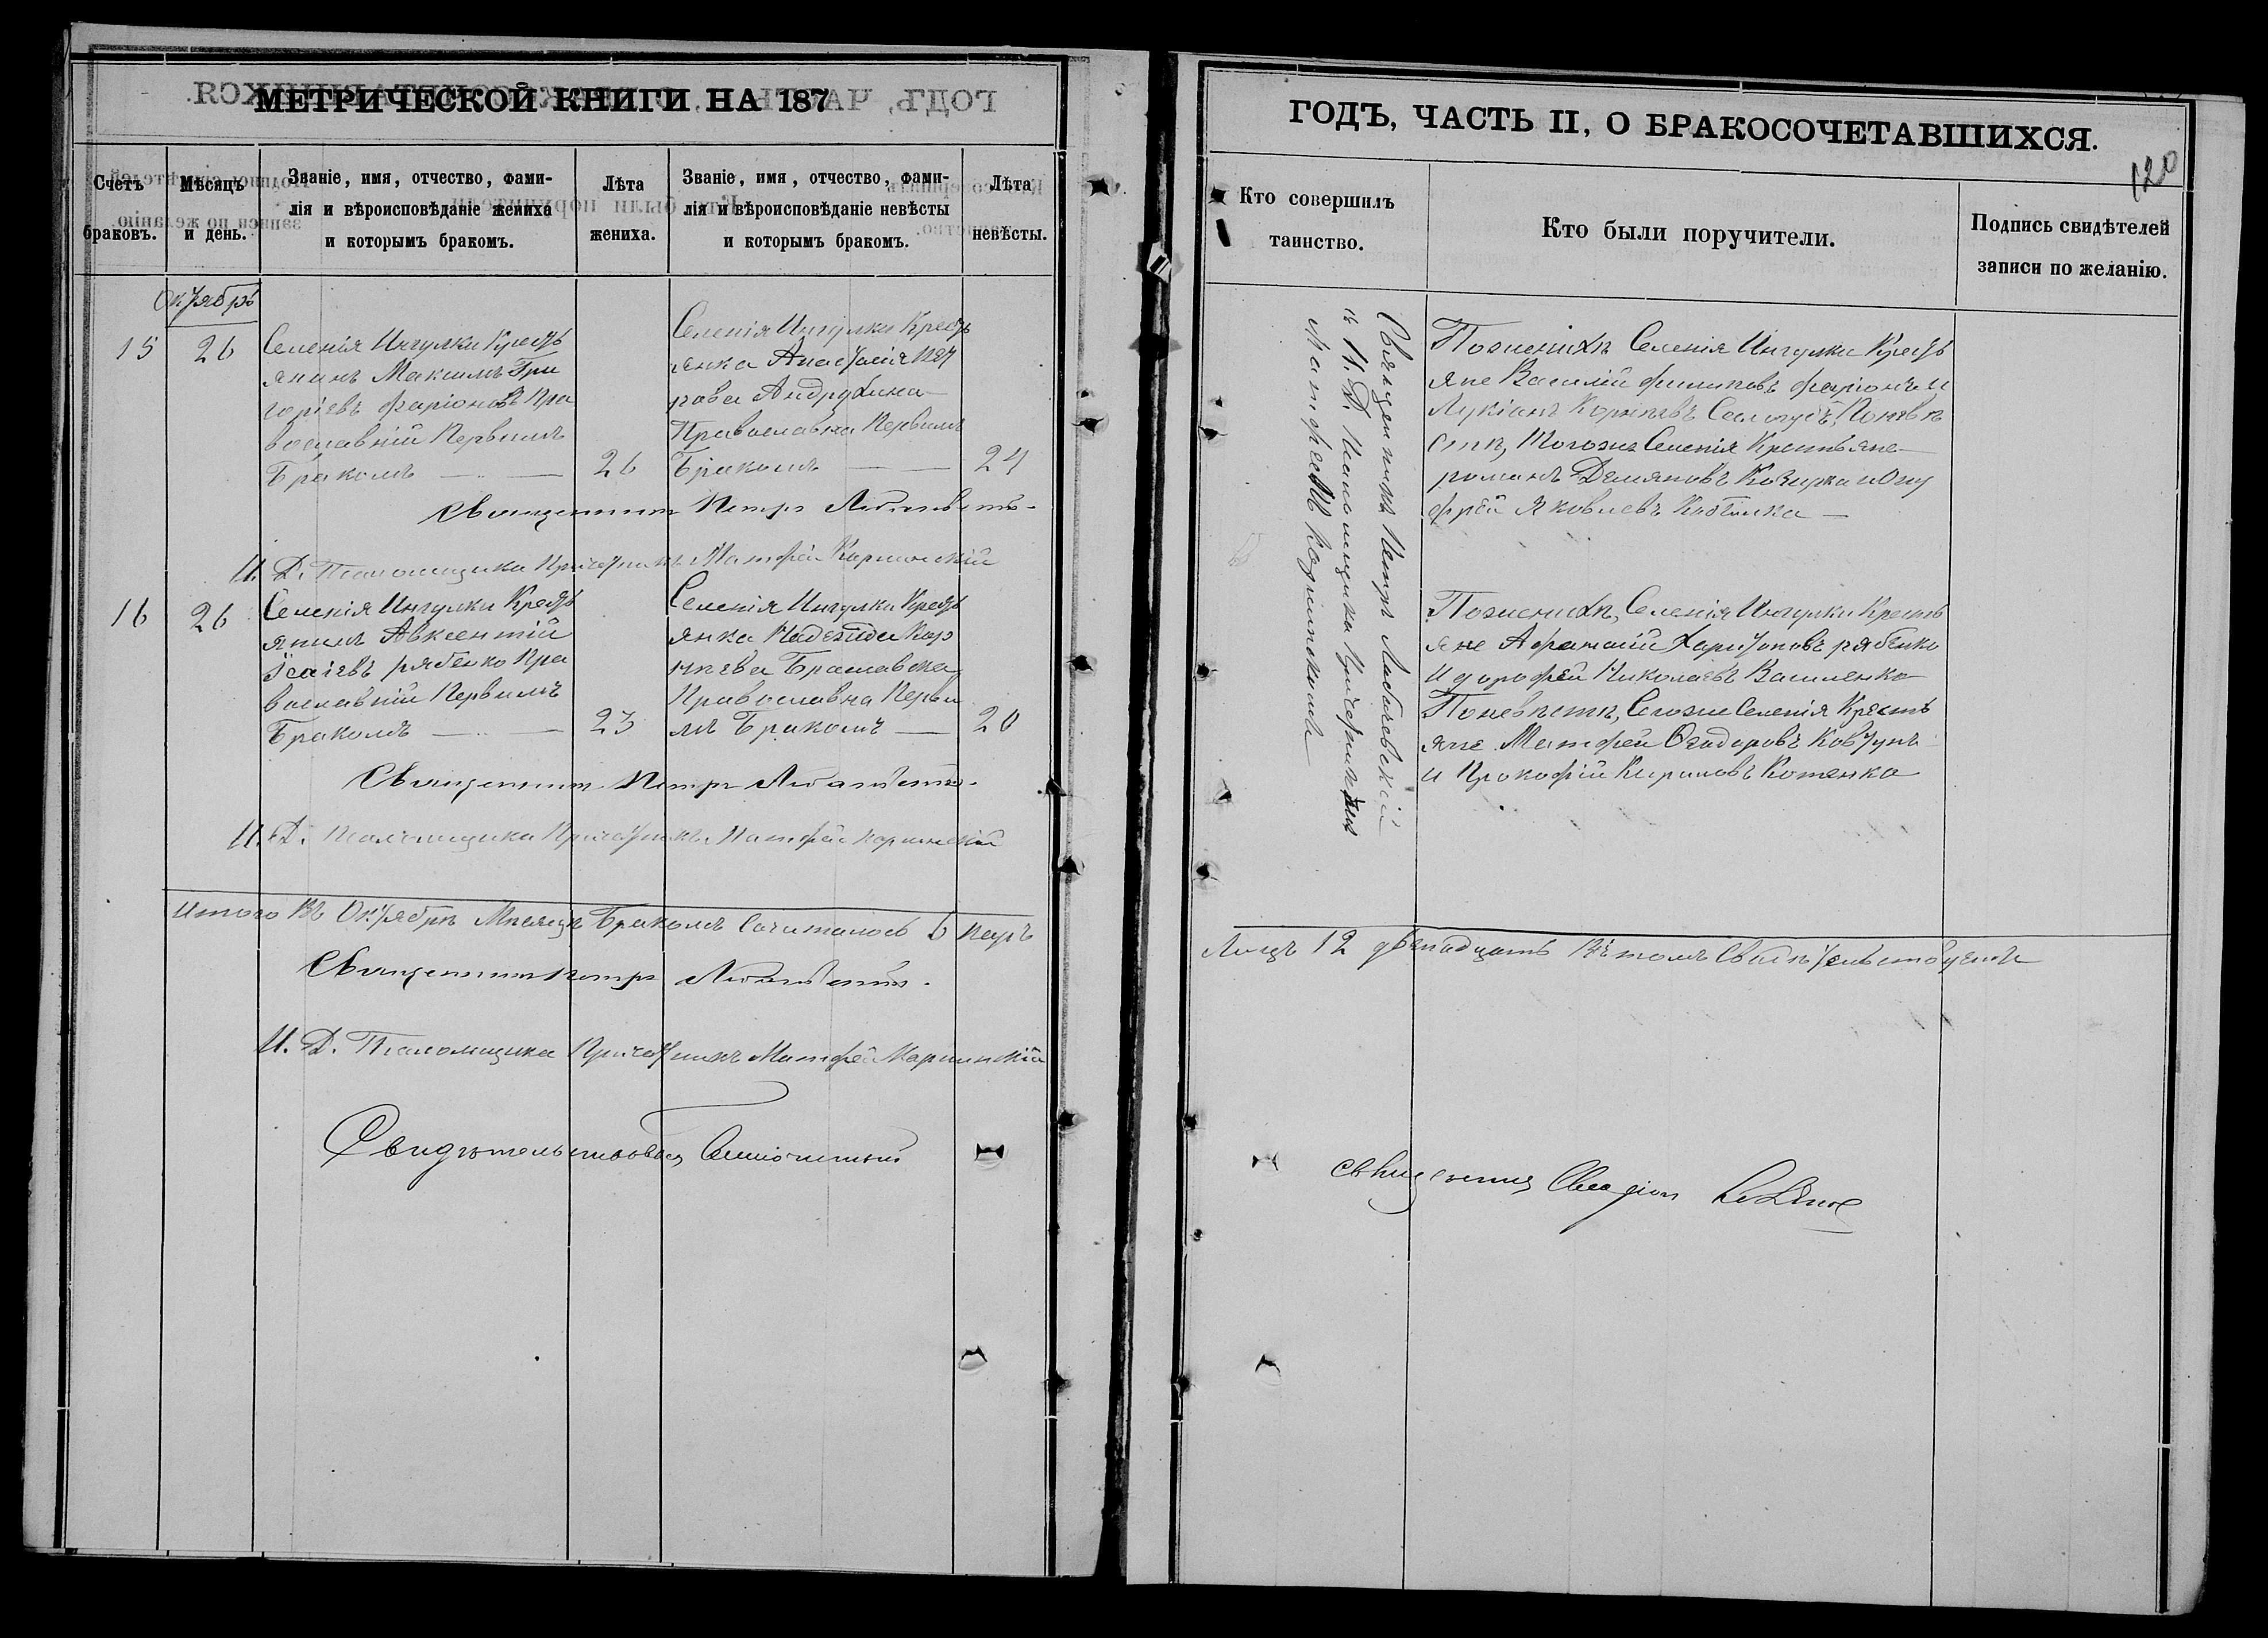 МЕТРИЧЕСКОЙ КНИГИ НА 187
Счетъ браковъ.
Мѣсяцъ и день.
Званіе, имя, отчество, фами-
лія и вѣроисповѣданіе жениха
и которымъ бракомъ.
Лѣта жениха.
Званіе, имя, отчество, фами-
лія и вѣроисповѣданіе невѣсты
и которымъ бракомъ.
Лѣта невѣсты.
Октябрь
15
26
Селенія Ингулки Кресть
янинъ Максимъ Гри
горіевъ Фаріоновъ Пра
вославній Первимъ
Бракомъ
26
Селенія Ингулки Кресть
янка Анастасія Пет
рова
Православна Первимъ
Бракомъ
24
Священникъ Петръ
И. Д. Псаломщика Причетникъ Матфей
16
26
Селенія Ингулки Кресть
янинъ Авксентій
Ісаіевъ рябенко Пра
вославній Первимъ
Бракомъ
23
Селенія Ингулки Кресть
янка Надежда Кор
нѣева Брашавска
Православна Перви
мъ Бракомъ
20
Священникъ Петръ
И. Д. Псаломщика Причетникъ Матфей
Итого Въ Октябрѣ Мѣсяцѣ Бракомъ Сочиталось 6 паръ
Священникъ Петръ
И. Д. Псаломщика Причетникъ Матфей
Свидѣтельствовалъ
ГОДЪ, ЧАСТЬ II, О БРАКОСОЧЕТАВШИХСЯ.
120
Кто совершилъ
таинство.
Кто были поручители.
Подпись свидѣтелей
записи по желанію.
Священникъ Петръ
съ И. Д. Псаломщика Причетникомъ
Матфеемъ
Поженихѣ Селенія Ингулки Кресть
яне Василій Филиповъ Фаріонъ И
Лукіанъ Корнѣевъ Понѣвѣ
стѣ, Тогоже Селенія Крестьяне
романъ Демяновъ иОну
фрій Яковлевъ
Поженихѣ, Селенія Ингулки Кресть
яне Афанасій Харитоновъ рябенко
И дорофей Николаевъ Василенко
Поневѣстѣ, Сегоже Селенія Кресть
яне Матфей Феодоровъ Ковтунъ
и Прокофій Кириловъ Котенко
Лицъ 12 двенадцать Въ томъ Свидѣтельствуемъ
священникъ